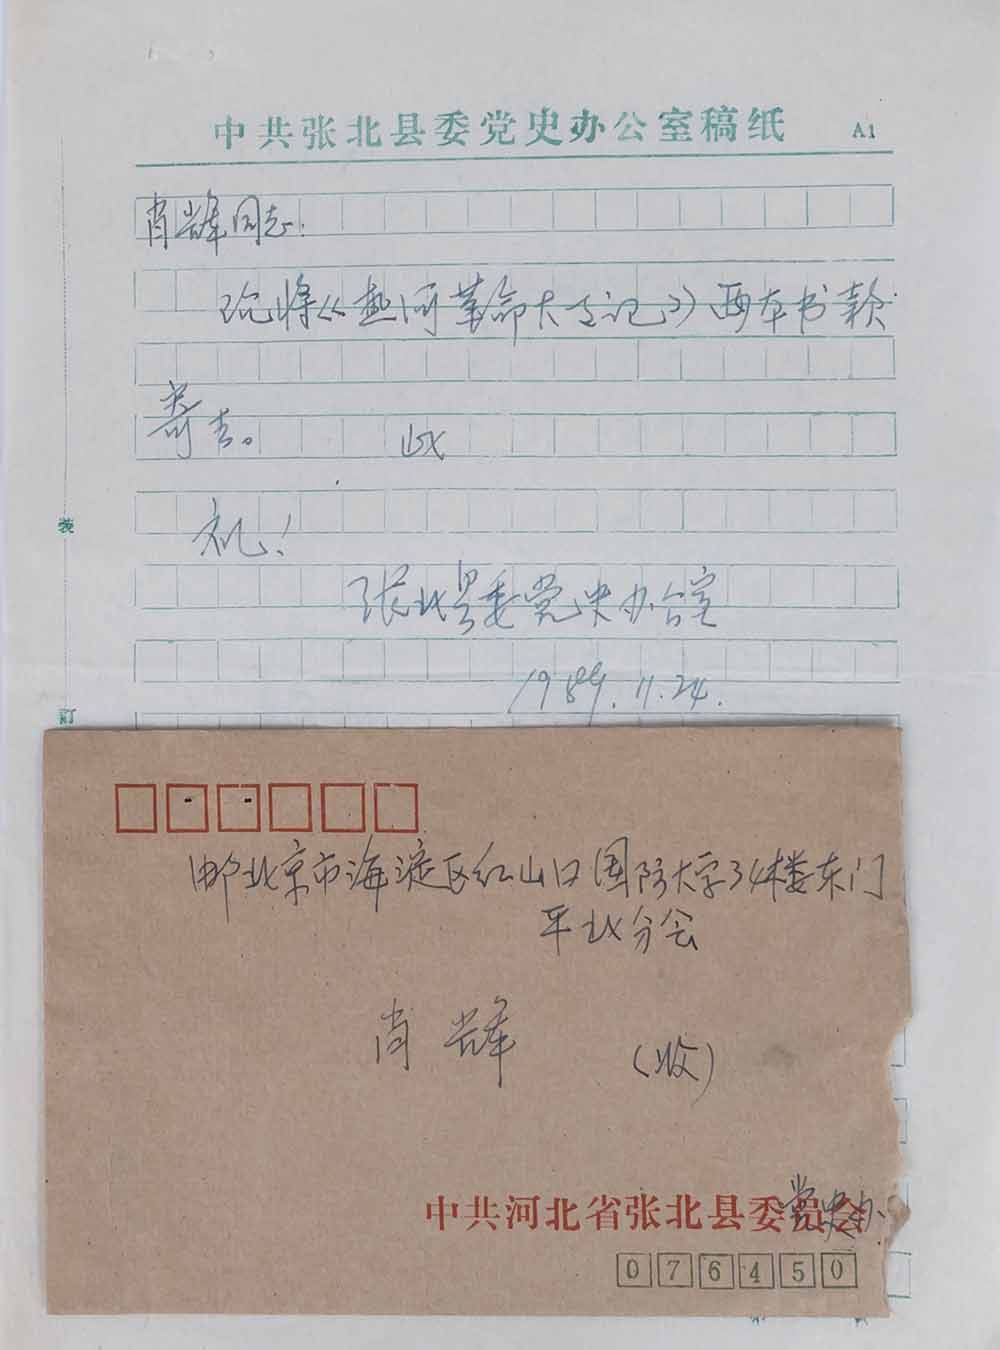 中共张北县委党史办公室稿纸 A1
肖辉同志:
现将《热河革命大事记》两本书款
寄去。 此
礼!
张北县委党史办公室
1989.11.24.
装
订
邮北京市海淀区红山口国防大学34楼东门
平北分会
肖辉
(收)
中共河北省张北县委员会 党史办
076450